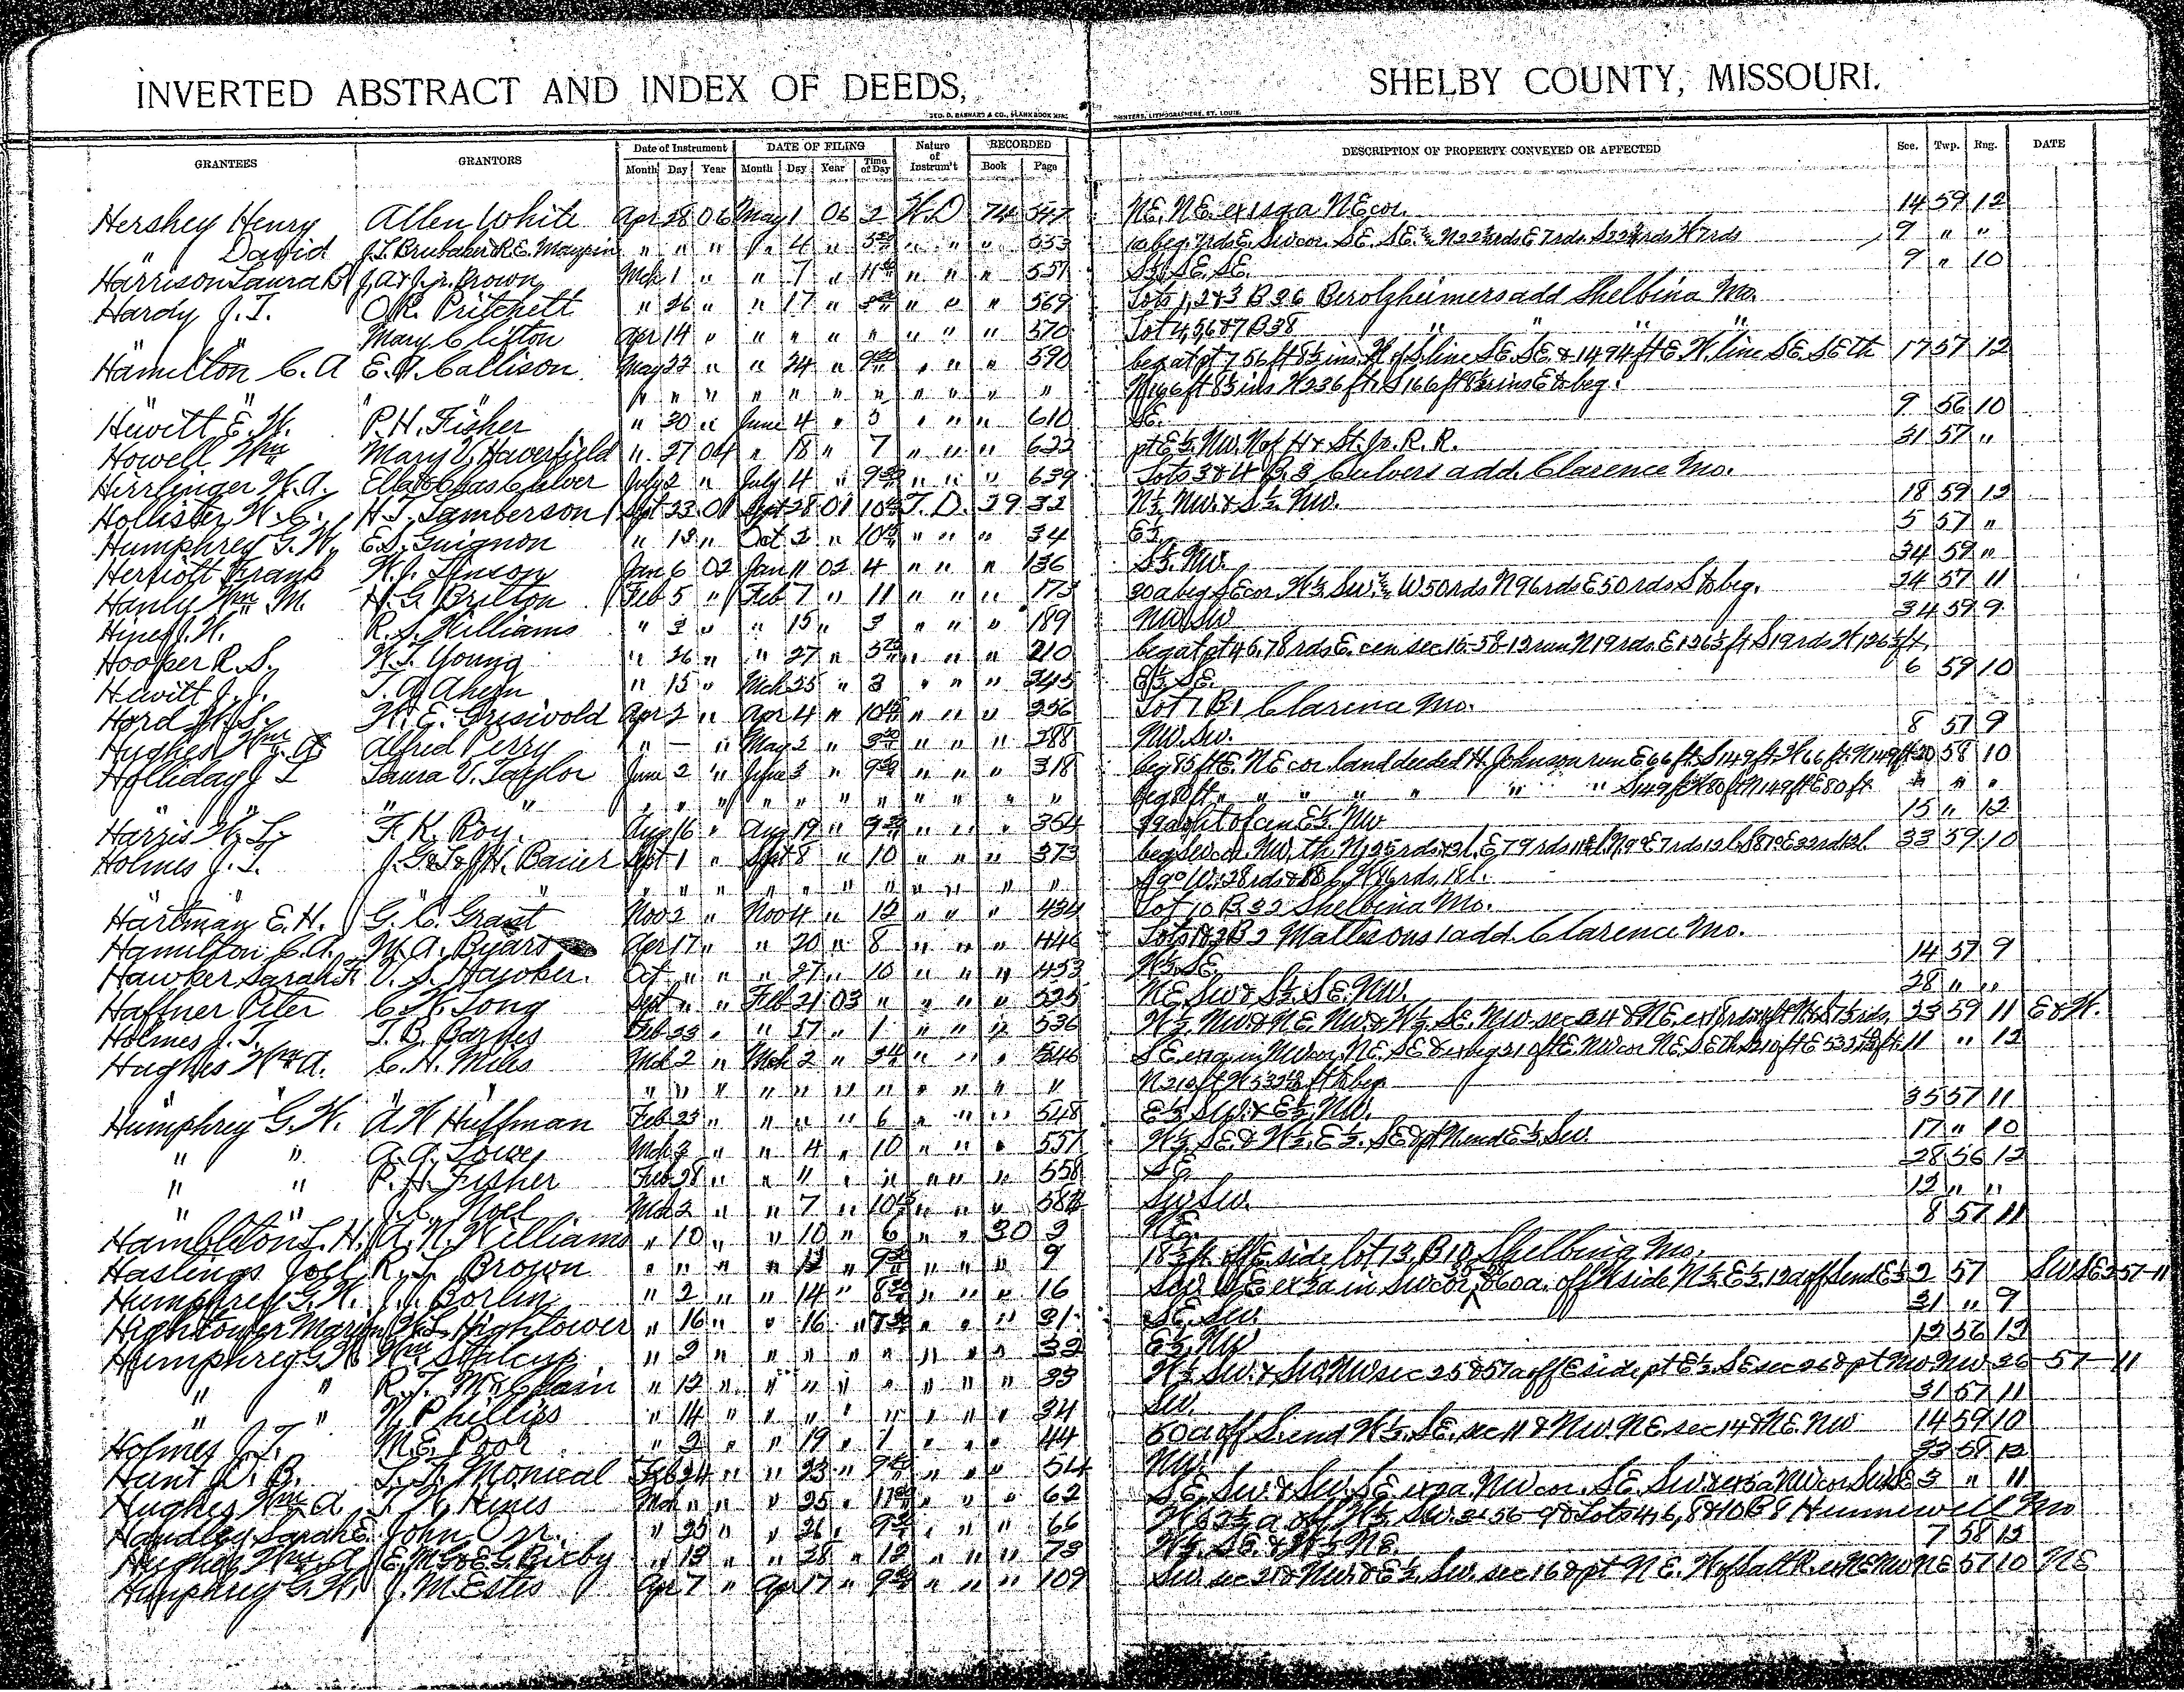 INVERTED ABSTRACT AND INDEX OF DEEDS, SHELBY COUNTY, MISSOURI.
GEO. D. BARNARD & CO., BLANK BOOK MFRS PRINTERS, LITHOGRAPHERS, ST. LOUIS.
GRANTEES GRANTORS Date of Instrument DATE OF FILING Nature of Instrum't RECORDED DESCRIPTION OF PROPERTY CONVEYED OR AFFECTED Sec. Twp. Rng. DATE
Month Day Year Month Day Year Time of Day Book Page
Hershey Henry Allen White Apr 28 06 May 1 06 2 W.D 74 547 NE, NE. ex 1 sq a NE cor. 14 59 12
" David J.L. Brubaker & R.E. Maupin " " " " 4 " " " " 553 9 " "
Harrison Laura B Brown Mch 1 " " 7 " " " " 551 S½ SE SE. 9 " 10
Hardy J.T. O.R. Pritchett " 26 " " 17 " " " " 569 Lots 1, 2 & 3 B 36 Berolzheimers add Shelbina Mo.
" " Mary Clifton Apr 14 " " " " " " " " 570 Lot 4, 5 6 & 7 B 38 " " " "
Hamilton C. A E.A. Callison May 22 " " 24 " " " " 590 beg at pt 756 ft 8½ ins N of S line SE. SE. & 1494 ft E. W. line SE SE th 17 57 12
" " " " " " " " " " " " " N 166 ft 8½ ins W 236 ft. S 166 ft 8½ ins E to beg.
Hewitt E. W. P.H. Fisher " 30 " June 4 " 5 " " " 610 SE. 9 56 10
Howell Wm Mary V. Haverfield " 27 04 " 18 " 7 " " " 622 pt E½. NW. N of H & St. Jo. R. R. 31 57 "
Hirrlinger W.A. Ella & Chas Culver July 2 " July 4 " 9 30 " " " 639 Lots 3 & 4 B. 3 Culvers add. Clarence Mo.
Hollister W. C. H.T. Lamberson Sept 23 01 Sept 28 01 T. D. 29 32 N½ NW. & S½ NW. 18 59 12
Humphrey G. W. E.S. Guignon " 13 " Oct 2 " " " " 34 E½ 5 57 "
Herriott Frank W.J. Linson Jan 6 02 Jan 11 02 4 " " " 136 S½. NW. 34 59 "
Hanly Wm M. H.G. Britton Feb 5 " Feb 7 " 11 " " " 173 30 a beg SE cor. W½ SW. th W 50 rds N 96 rds E 50 rds S to beg. 24 57 11
Hines J. W. R.S. Williams " 3 " " 15 " 3 " " " 189 NW. SW 34 59 9
Hooper R. S. W.T. Young " 26 " " 27 " " " " 210 beg at pt 46.78 rds E. cen sec 15-58-12 run N 19 rds. E 126½ ft S 19 rds W 126½ ft.
Hewitt J. J. T. A. Ahern " 15 " Mch 25 " 3 " " " 245 E½ SE. 6 59 10
Hord W. S. W. E. Griswold Apr 2 " Apr 4 " " " " 256 Lot 7 B 1 Clarence Mo.
Hughes Wm. A Alfred Perry " — " May 2 " " " " 288 NW. SW. 8 57 9
Holliday J L Laura V. Taylor June 2 " June 3 " 9 30 " " " 318 beg 85 ft E. NE cor. land deeded H. Johnson run E 66 ft. S 149 ft. W 66 ft. N 149 ft 20 58 10
" " " " " " " " " " " " " beg 80 ft " " " " " " S 149 ft W 80 ft N 149 ft E 80 ft " " "
Harris W. L. F. K. Roy. Aug 16 " Aug 19 " " " " 354 E½ NW 15 " 12
Holmes J. T. J.G. & L & J.H. Bauer Sept 1 " Sept 8 " 10 " " " 373 beg SW cor. NW. th 33 59 10
Hartman E. H. G. C. Grant Nov 2 " Nov 4 " 12 " " " 434 Lot 10 B. 32 Shelbina Mo.
Hamilton C. A. M. A. Byars Apr 17 " " 20 " 8 " " " 446 Lots 1 & 2 B 2 Mattesons 1 add. Clarence Mo.
Hawker Sarah F. V. S. Hawker. Oct " " " 27 " 10 " " " 453 W½ SE. 14 57 9
Haffner Peter C. W. Long Sept " " Feb 21 03 " " " " 525 NE. SW & S½ SE. NW. 28 " "
Holmes J. T. T. B. Barnes Feb 23 " " " 1 " " " 536 W½ NW. & NE. NW. & W½ SE. NW. sec 24 & NE. 23 59 11 E & W.
Hughes Wm A. C. H. Miles Mch 2 " Mch 2 " " " " 546 11 " 12
Humphrey G. W. A W Huffman Feb 23 " " " " 6 " " " 548 E½ SW. & E½ NW. 35 57 11
" " A. A. Lowe Mch 3 " " 4 " 10 " " " 557 W½. SE & W½. E½. SE & pt N end E½ SW. 17 " 10
" " P. H. Fisher Feb 28 " " " " " " " " 558 SE. 28 56 12
" " J. C. Noel Mch 2 " " 7 " " " " SW SW. 12 " "
Hambleton L. H. A. N. Williams " 10 " " 10 " 6 " " 30 3 NE. 8 57 11
Hastings Joel R. L. Brown " " " " 12 " " " " 9 18½ ft. off E. side lot 13, B 10, Shelbina Mo.
Humphrey G. W. J. J. Borlin " 2 " " 14 " 8 30 " " " 16 SW. SE ex 2a in SW cor, & 60 a. off W side N½. E½. 12 a off S end E½ 2 57 SW SE 2 57-11
Hightower Marion W. L. Hightower " 16 " " 16 " " " " 31 SE. SW. 31 " 9
Humphrey G. W Wm Stalcup " 2 " " " " " " " " 32 E½ NW 12 56 12
" " R. T. McClain " 12 " " " " " " " " 33 W½ SW. & SW. NW sec 25 & 57 a off E side pt E½. SE sec 26 & pt NW NW 36 - 57 - 11
" " W. Phillips " 14 " " " " " " " " 34 SW. 31 57 11
Holmes J. T. M. E. Poor " 2 " " 19 " 1 " " " 44 50 a off S. end W½. SE. sec 11 & NW. NE. sec 14 & NE. NW 14 59 10
Hunt D. B. Monical Feb 24 " " 23 " " " " 54 NW. 33 58 12
Hughes Wm A T. W. Hines Mch " " " 25 " " " " 62 SE. SW. & SW. SE 3 " 11
Handley Sarah E. John Orr. " 25 " " 26 " " " " 66 SW. 2-56-9 & Lots 4, 6, 8 & 10 B 8 Hunnewell Mo
Hughes Wm A E. M. & E. G. Bixby " 13 " " 28 " 12 " " " 73 W½. SE. & W½ NE 7 58 12
Humphrey G. W J. M. Estes Apr 7 " Apr 17 " " " " 109 SW. sec 21 & NW. & E½. SW. sec 16 & pt NE. W of Salt R. NE 57 10 NE